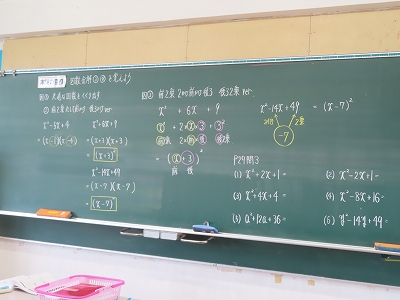 因数分解②③を覚えよう
x²-5x+4
= (x-1)(x-4)
x²+6x+9
= (x+3)(x+3)
= (x+3)²
x²-14x+49
= (x-7)(x-7)
= (x-7)²
前2乗 2の前の後3 後32乗 ver.
x² + 6x + 9
x² + 2×x×3 + 3²
= (x+3)²
前 後
x²-14x+49 = (x-7)²
2倍 2乗
-7
P29問3
(1) x²+2x+1 =
(2) x²-2x+1 =
(3) x²+4x+4 =
(4) x²-8x+16 =
(5) a²+12a+36 =
(6) y²-14y+49 =